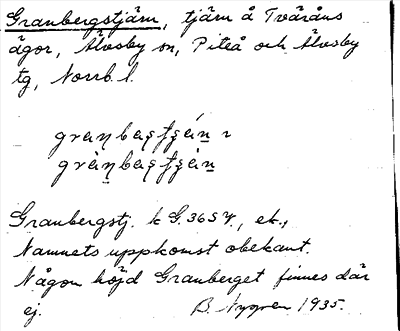 Granbergstjärn, tjärn å Tväråns
ägor, Älvsby sn, Piteå och Älvsby
tg, Norrb. l.
Granbergstj. k G. 365 V., ek.,
Namnets uppkomst obekant.
Någon höjd Granberget finnes där
ej. B. Nygren 1935.